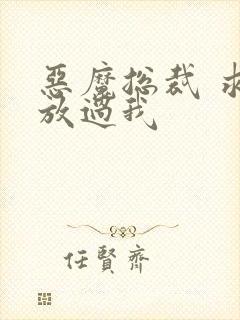 惡魔总裁 求
放過我
任賢齊